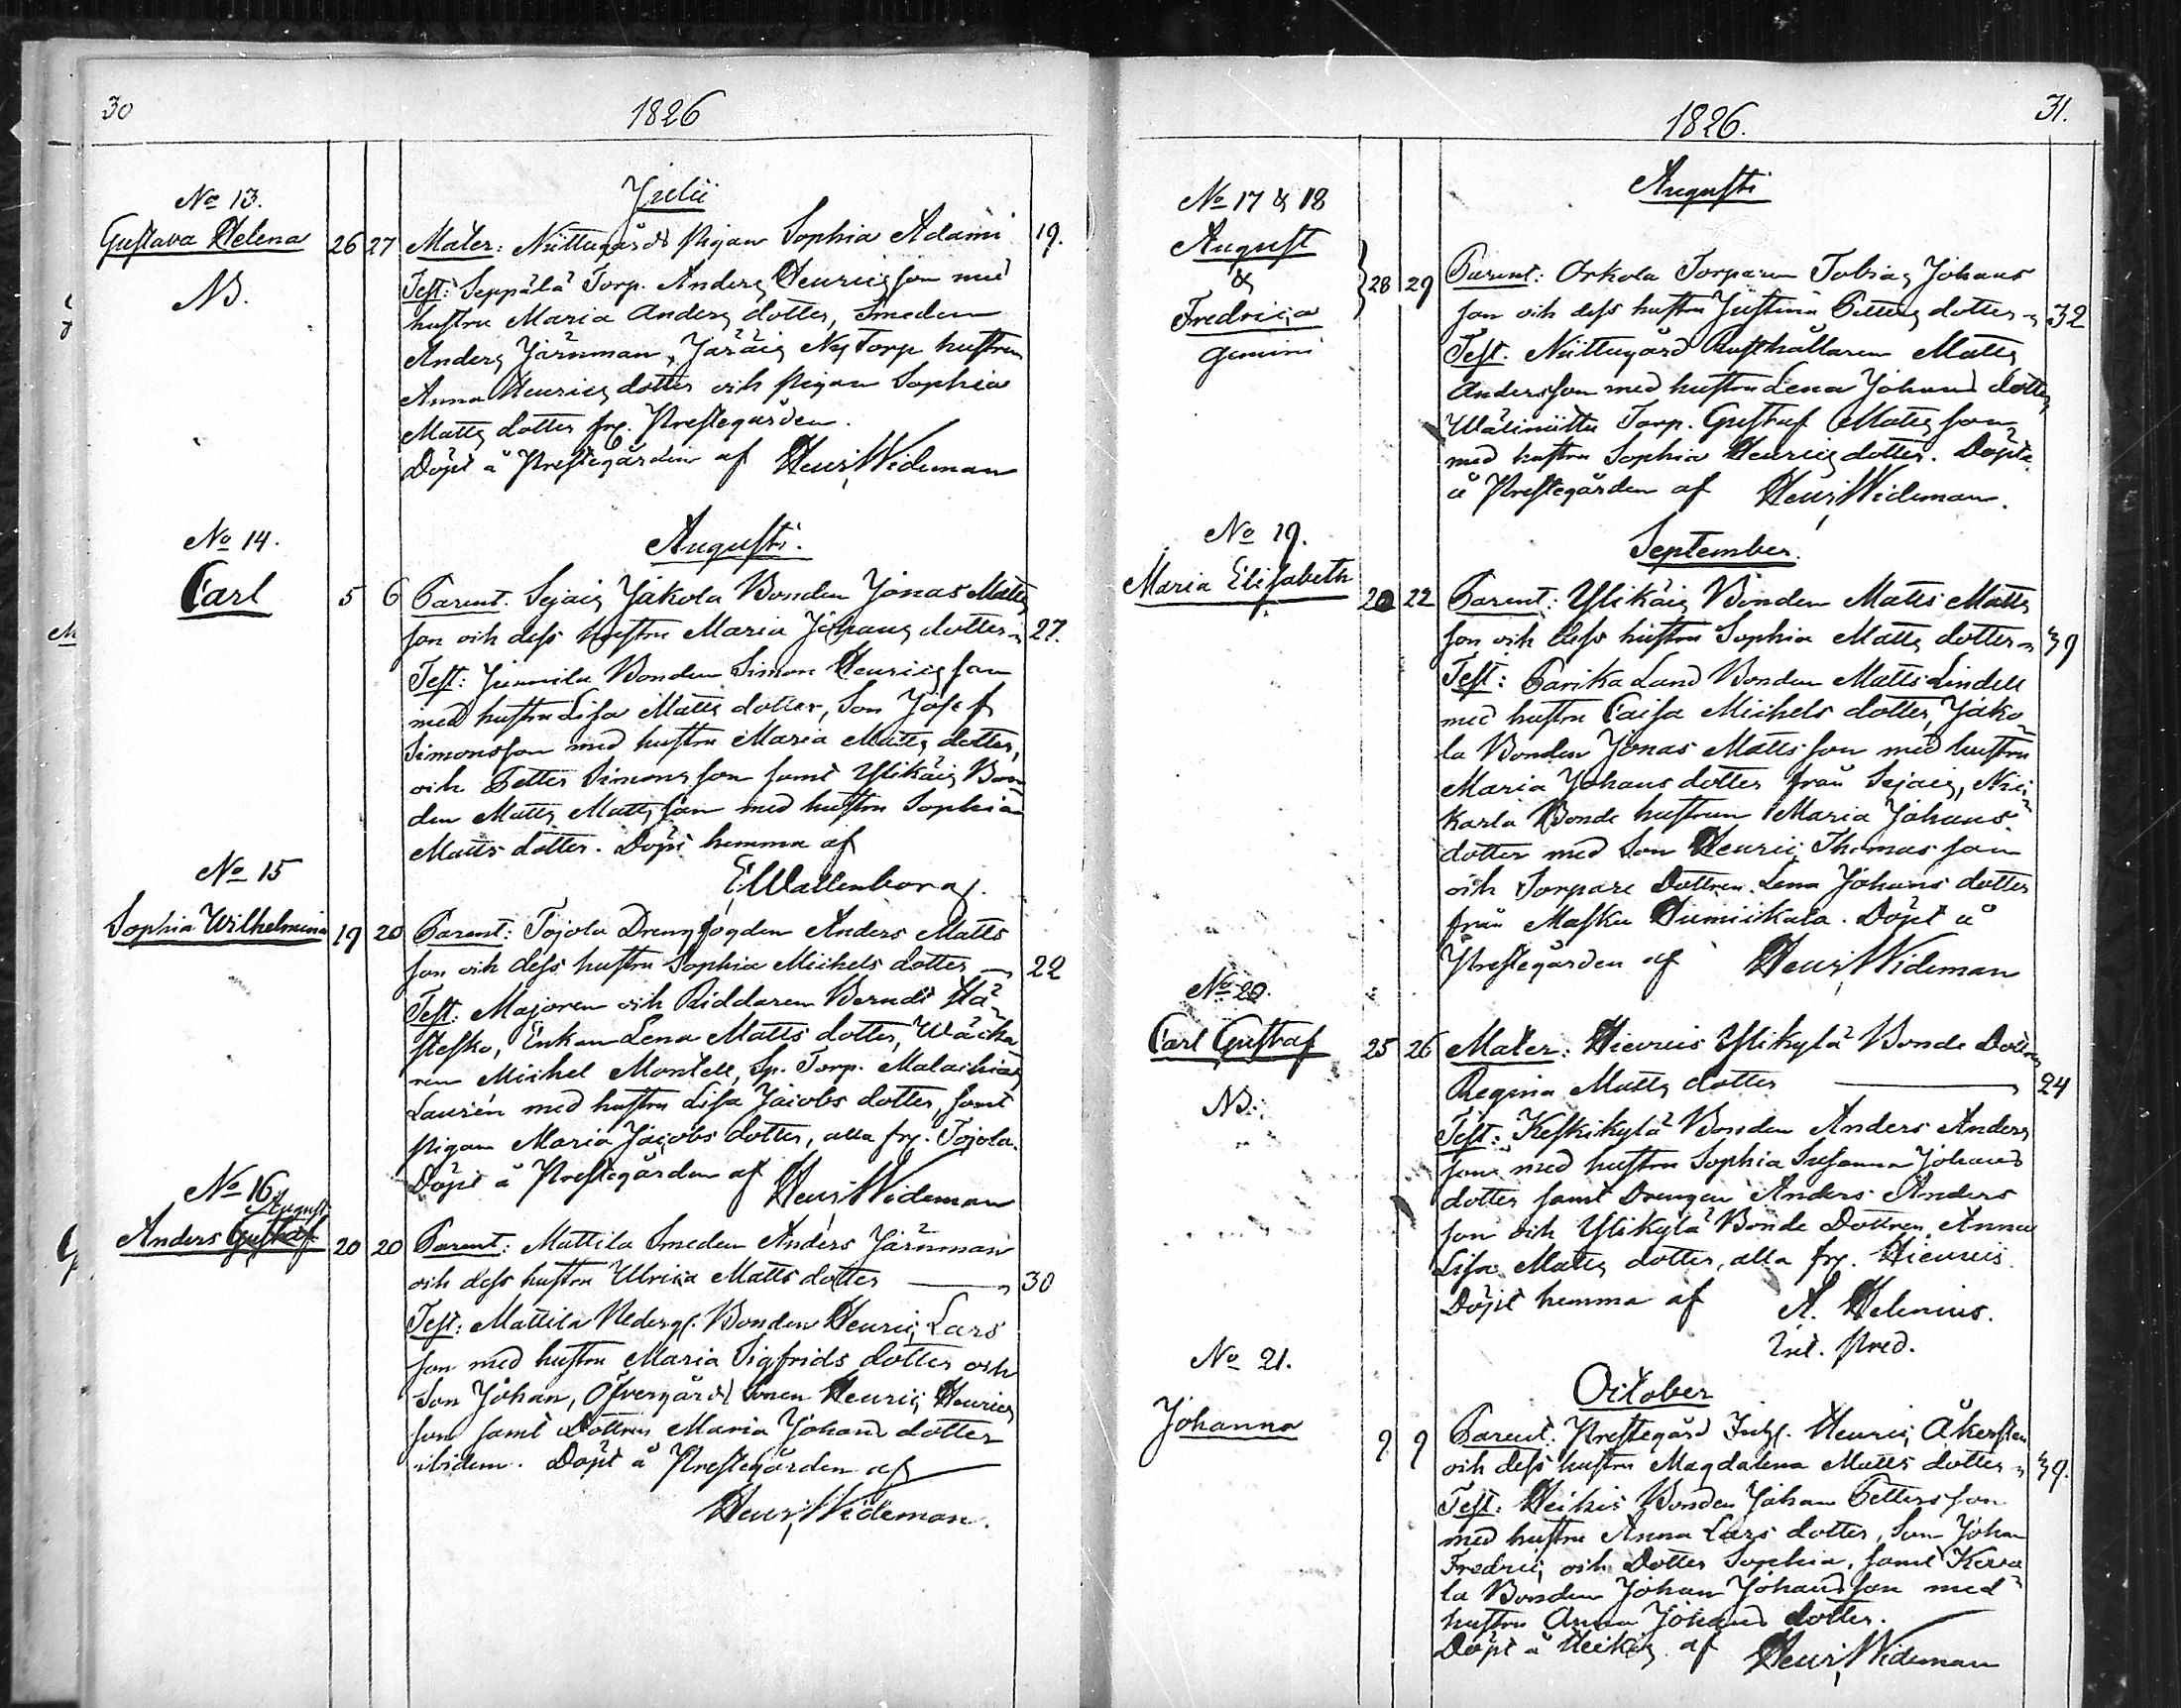 30
1826
Julii
No 13.
Gustava Helena 26 27 Mater: Niittugårds Pigan Sophia Adami 19.
NB.
Test: Seppälä Torp. Anders Henricsson med
hustru Maria Anders dotter, Smeden
Anders Järnman, Järäis Nytorp hustrun
Anna Henrics dotter och Pigan Sophia
Matts dotter frn. Prestegården.
Döpt å Prestegården af Henr. Wideman
Augusti.
No 14.
Carl 5 6 Parent. Sejais Jakola Bonden Jonas Matts
son och dess hustru Maria Johans dotter 27.
Test: Junnila Bonden Simon Henricsson
med hustru Lisa Matts dotter, Son Josef
Simonsson med hustru Maria Matts dotter,
och Petter Simonsson samt Ylikäis Bon
den Matts Mattsson med hustru Sophia
Matts dotter. Döpt hemma af
E. Wallenborg.
No 15
Sophia Wilhelmina 19 20 Parent: Tojola Drengfogden Anders Matts
son och dess hustru Sophia Michels dotter 22
Test: Majoren och Riddaren Berndt Hä-
stesko, Enkan Lena Matts dotter, Wäcka
ren Michel Montell, Sp. Torp. Malachias
Laurén med hustru Lisa Jacobs dotter, samt
Pigan Maria Jacobs dotter, alla frn. Tojola.
Döpt å Prestegården af Henr. Wideman
No 16
August
Anders Gustaf 20 20 Parent: Mattila Smeden Anders Järnman
och dess hustru Ulrica Matts dotter 30
Test: Mattila Nederg. Bonden Henric Lars
son med hustru Maria Sigfrids dotter och
Son Johan, Öfvergårds Sonen Henric Henrics
son samt Dottren Maria Johans dotter
ibidem. Döpt å Prestegården af
Henr. Wideman.
31.
1826.
Augusti
No 17 & 18
August
&
Fredrica
gemini
28 29 Parent: Orkola Torparen Tobias Johans
son och dess hustru Justina Petters dotter 32
Test. Niittugård Rusthållaren Matts
Andersson med hustru Lena Johans dotter,
Wäliniittu Torp. Gustaf Matsson
med hustru Sophia Henrics dotter. Döpte
å Prestegården af Henr. Wideman.
September.
No 19.
Maria Elisabeth 20 22 Parent: Ylikäis Bonden Matts Matts
son och dess hustru Sophia Matts dotter 39
Test: Parika Land Bonden Matts Lindell
med hustru Caisa Michels dotter, Jako-
la Bonden Jonas Mattsson med hustru
Maria Johans dotter från Sejais, Nii-
karla Bonde hustrun Maria Johans
dotter med Son Henric Thomasson
och Torpare Dottren Lena Johans dotter
från Masku Humikala. Döpt å
Prestegården af Henr. Wideman
No 20.
Carl Gustaf 25 26 Mater: Hieurus Ylikylä Bonde Dottren
NB.
Regina Matts dotter 24
Test: Keskikylä Bonden Anders Anders
son med hustru Sophia Susanna Johans
dotter samt Drengen Anders Anders
son och Ylikylä Bonde Dottren Anna
Lisa Matts dotter, alla frn. Hieurus
Döpt hemma af A. Helenius.
Ext. Pred.
October
No 21.
Johanna 9 9 Parent: Prestegård Inh. Henric Åkersten
och dess hustru Magdalena Matts dotter 39.
Test: Heikis Bonden Johan Pettersson
med hustru Anna Lars dotter, Son Johan
Fredric och Dotter Sophia, samt
la Bonden Johan Johansson med
hustru Anna Johans dotter.
Döpt å Heikis af Henr. Wideman